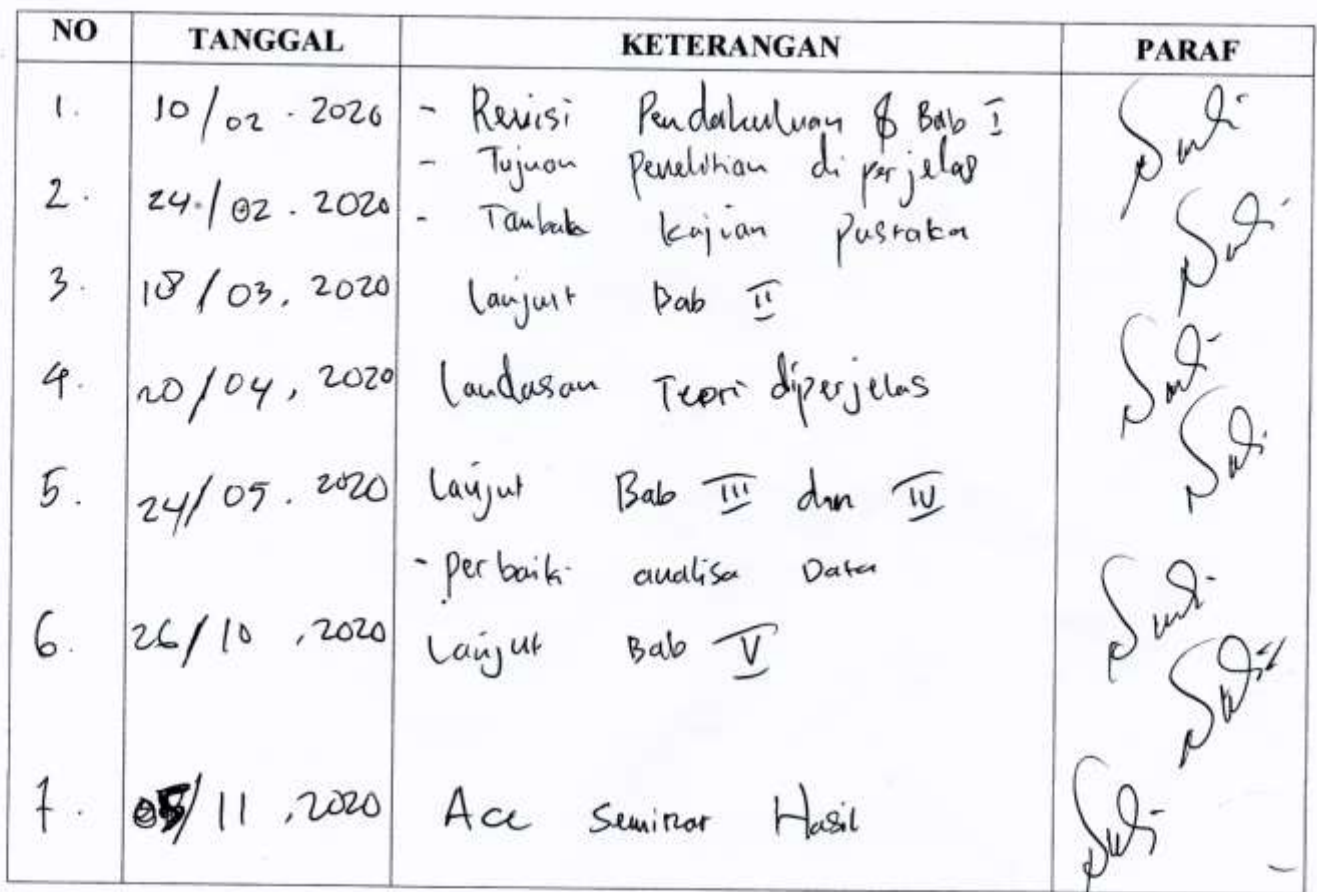 NO TANGGAL KETERANGAN PARAF
1. 10/02.2020 - Revisi Pendahuluan & Bab I
- Tujuan penelitian diperjelas
2. 24/02.2020 - Tambah kajian pustaka
3. 18/03, 2020 Lanjut Bab II
4. 20/04, 2020 Landasan Teori diperjelas
5. 24/05. 2020 Lanjut Bab III dan IV
- perbaiki analisa Data
6. 26/10, 2020 Lanjut Bab V
7. 05/11, 2020 Acc Seminar Hasil